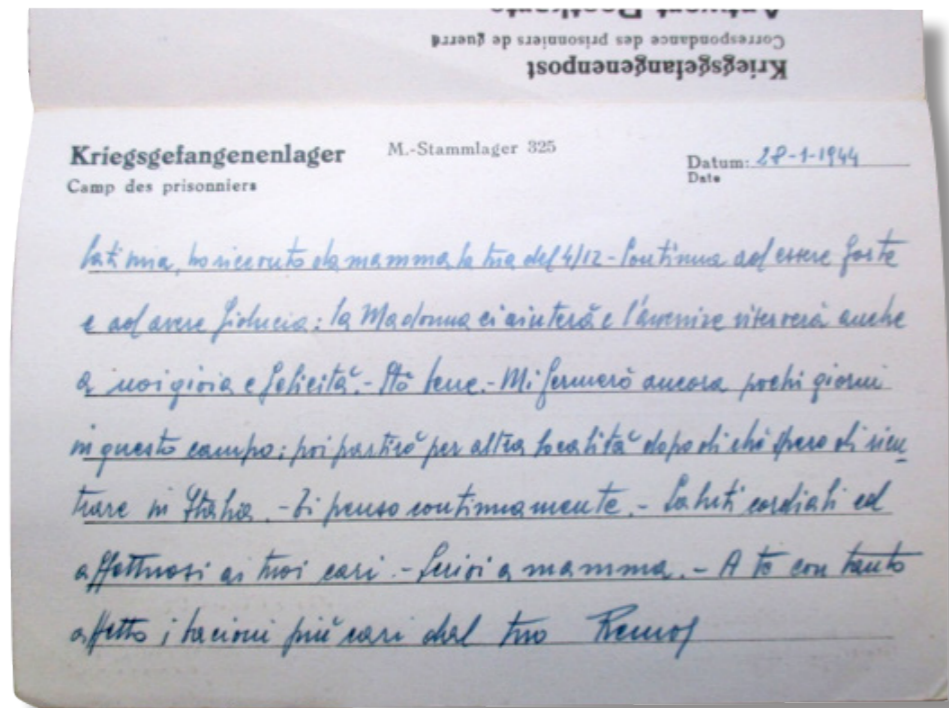 Antwort-Postkarte
Correspondance des prisonniers de guerre
Kriegsgefangenenpost
Kriegsgefangenenlager M.-Stammlager 325 Datum: 28-1-1944
Camp des prisonniers Date
mia, ho ricevuto da mamma la tua del 4/12 - Continua ad essere forte
e ad avere fiducia: la Madonna ci aiuterà e l'avvenire riserverà anche
a noi gioia e felicità. - Stò bene. - Mi fermerò ancora pochi giorni
in questo campo; poi partirò per altra località dopo di chè spero di rien
trare in Italia. - Ti penso continuamente. - Saluti cordiali ed
affettuosi ai tuoi cari. - Scrivi a mamma. - A te con tanto
affetto i bacioni più cari dal tuo